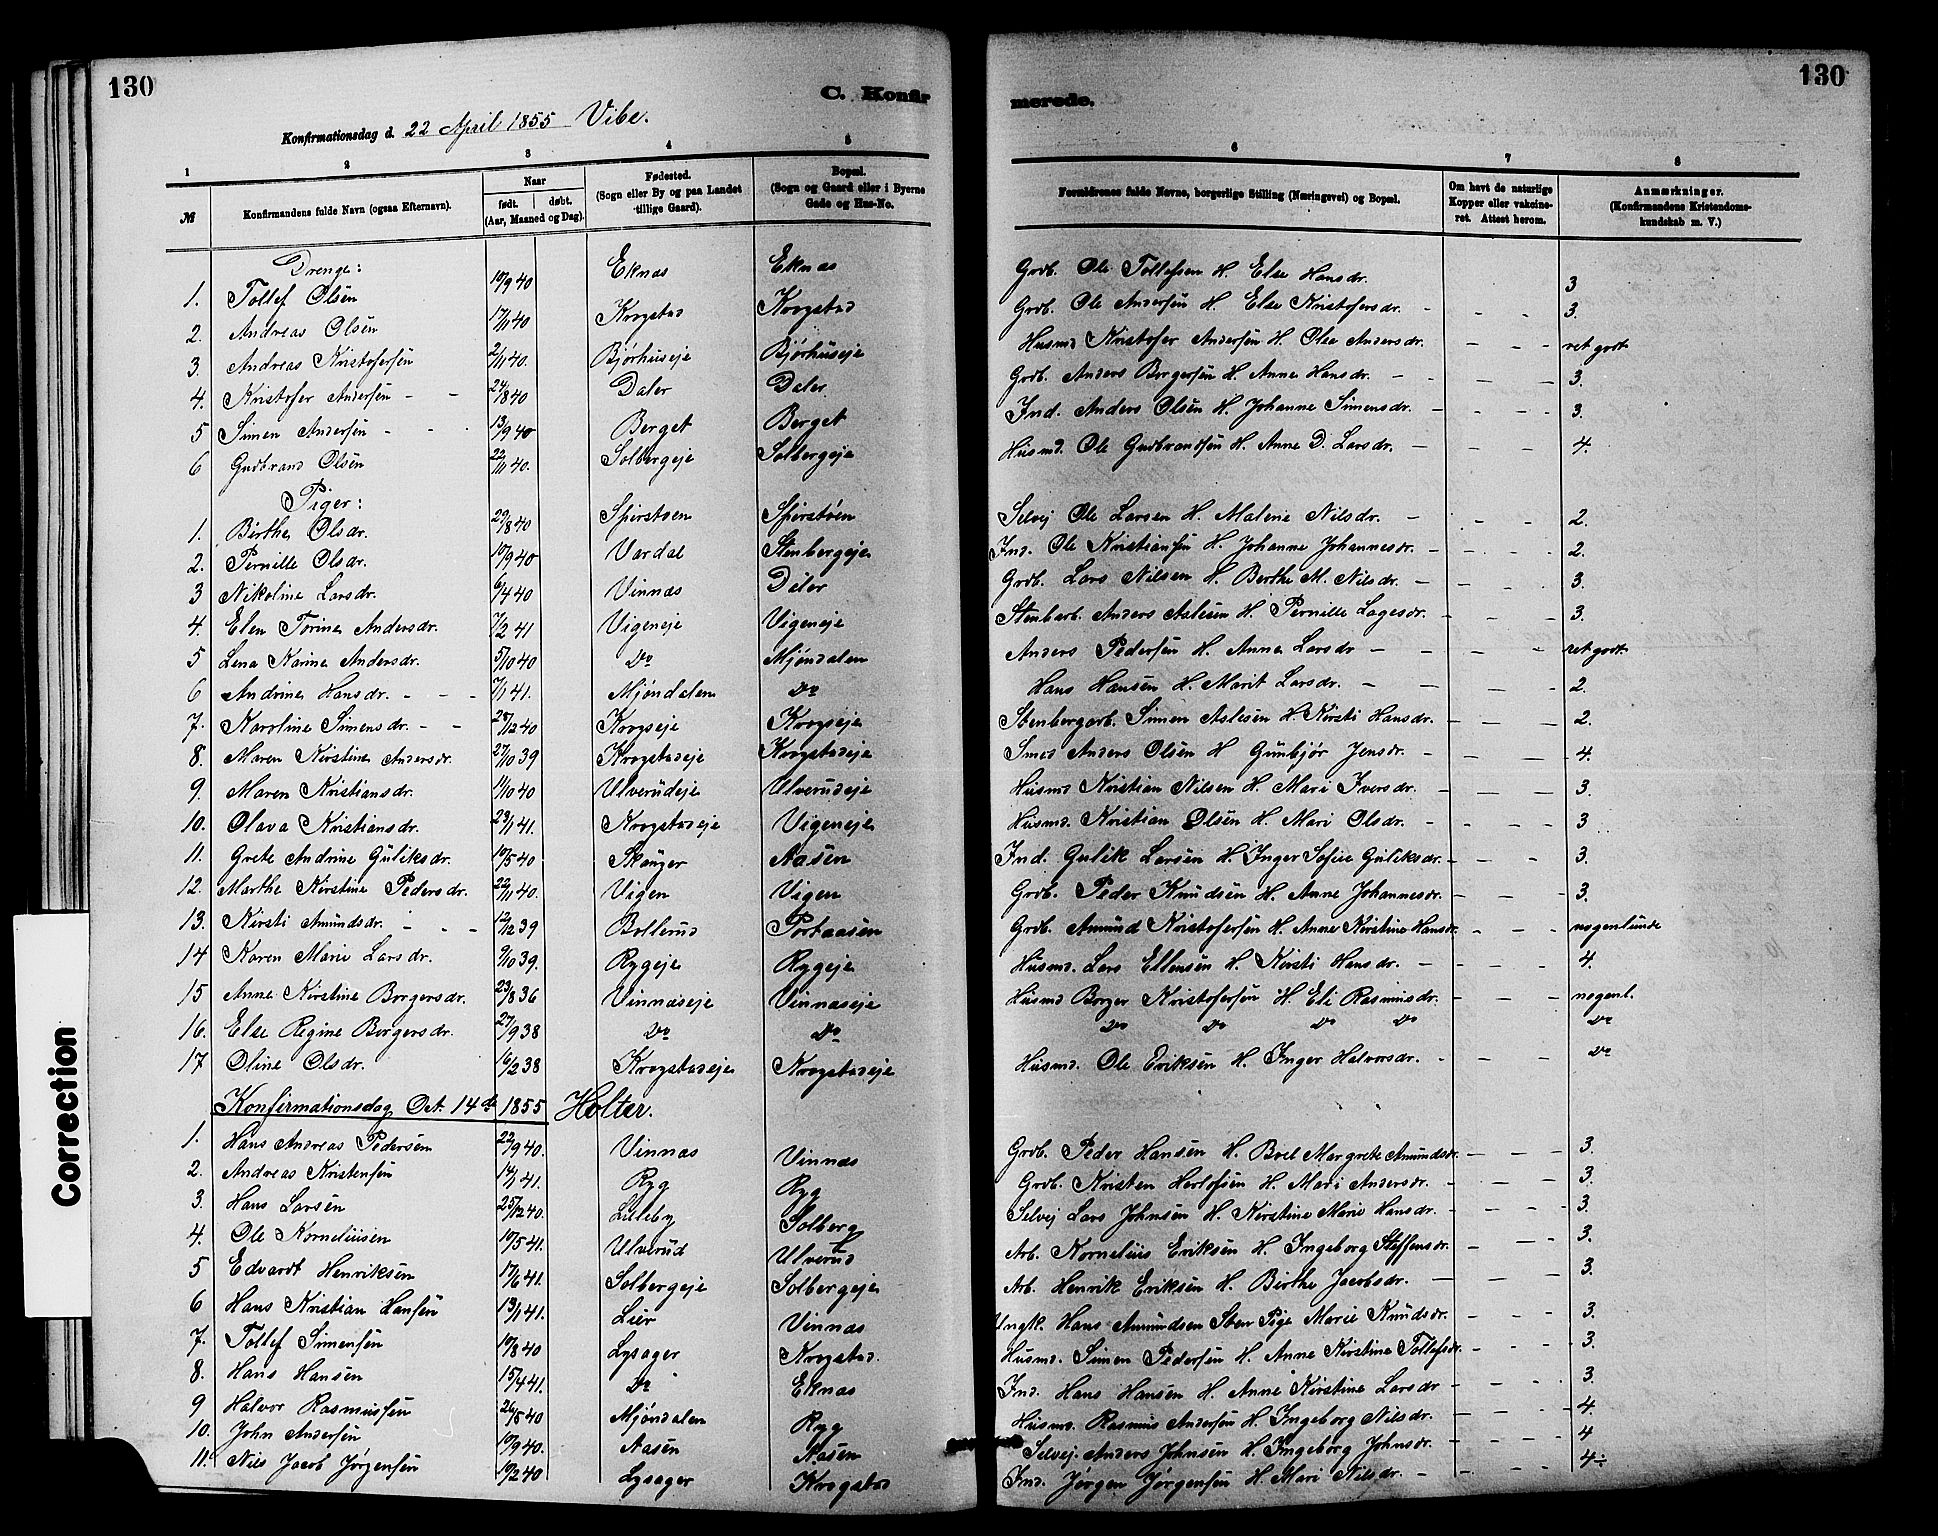 130
C. Konfir
merede.
130
Konfirmationsdag d. 22 April 1855 Vibe.
1 2 3 4 5 6 7 8
№ | Konfirmandens fulde Navn (ogsaa Efternavn). | Naar født. døbt. (Aar, Maaned og Dag). | Fødested. (Sogn eller By og paa Landet tillige Gaard). | Bopæl. (Sogn og Gaard eller i Byerne Gade og Hus-No. | Forældrenes fulde Navne, borgerlige Stilling (Næringsvei) og Bopæl. | Om havt de naturlige Kopper eller vakcineret. Attest herom. | Anmærkninger. (Konfirmandens Kristendomskundskab m. V.)
Drenge:
1. Tollef Olsen 19/9 40 Eknas Eknas Grdb. Ole Tollefsen H. Else Hansdr. 3
2. Andreas Olsen 17/11 40 Krogstad Krogstad Grdb. Ole Andersen H. Else Kristofersdr. - - - 3.
3. Andreas Kristofersen 2/11 40. Bjørhuseje Bjørhuseje Husmd Kristofer Andersen H. Olea Andersdr. - - - ret godt
4. Kristofer Andersen - - 24/8 40 Daler Daler Grdb. Anders Borgersen H. Anne Hansdr. - - - 3.
5 Simen Andersen - - 13/9 40 Berget Berget Ind. Anders Olsen H. Johanne Simensdr. - - - 3.
6 Gudbrand Olsen 22/11 40. Solbergeje Solbergeje Husmd. Ole Gudbrandsen H. Anne D. Larsdr. - - - 4.
Piger:
1. Berthe Olsdr. 29/8 40 Spirstøen Spirstøen Selvej Ole Larsen H. Malene Nilsdr. - - - 2.
2. Pernille Olsdr. 10/9 40 Vardal Stenbergeje Ind. Ole Kristiansen H. Johanne Johannesdr. - - - 2.
3 Nikoline Larsdr. 6/4 40 Vinnas Daler Grdb. Lars Nilsen H. Berthe M. Nilsdr. - - - 3.
4. Elen Torine Andersdr. 7/2 41 Vigeneje Vigeneje Stenbarb. Anders Aslesen H. Pernille Lagesdr. - - - 3.
5 Lena Karine Andersdr. 5/10 40 Do Mjøndalen Anders Pedersen H. Anne Larsdr - - - ret godt
6 Andrine Hansdr. - - - 7/1 41. Mjøndalen Do Hans Hansen H. Marit Larsdr. - - - 2.
7. Karoline Simensdr. - - 28/12 40 Krogseje Krogseje Stenbergarb. Simen Aslesen H. Kirsti Hansdr. - - - 2.
8. Maren Kirstine Andersdr. 27/10 39 Krogstadeje Krogstadeje Smed Anders Olsen H Gunbjør Jensdr. - - - 4.
9. Maren Kristiansdr. 11/10 40 Ulverudeje Ulverudeje Husmd Kristian Nilsen H. Mari Iversdr. - - - 3.
10. Olava Kristiansdr. 23/1 41. Krogstadeje Vigeneje Husmd. Kristian Olsen H. Mari Olsdr. - - - 3
11. Grete Andrine Guliksdr. 19/5 40 Skanger Aasen Ind. Gulik Larsen H. Inger Sofie Guliksdr. - - - 3.
12. Marthe Kirstine Pedersdr. 22/11 40. Vigen Vigen Grdb. Peder Knudsen H. Anne Johannesdr. - - - 3.
13. Kirsti Amundsdr. - - - 12/12 39 Bollerud Portaasen Grdb. Amund Kristofersen H. Anne Kirstine Hansdr. - - - nogenlunde
14 Karen Marie Larsdr. 9/10 39. Rygeje Rygeje Husmd. Lars Ellensen H. Kirsti Hansdr. - - - 4.
15 Anne Kirstine Borgersdr. 23/8 36 Vinnaseje Vinnaseje Husmd Borger Kristofersen H. Eli Rasmusdr. - - - nogenl.
16. Else Regine Borgersdr. 27/9 38 Do Do Do Do Do Do Do
17 Oline Olsdr. 16/2 38 Krogstadeje Krogstadeje Husmd. Ole Eriksen H. Inger Halvorsdr. - - - Do
Konfirmationsdag Oct. 14de 1855 Holter.
1. Hans Andreas Pedersen 22/9 40. Vinnas Vinnas Grdb. Peder Hansen H. Boel Margrete Amundsdr. - - - 3.
2. Andreas Kristensen 14/1 41. Ryg Ryg Grdb. Kristen Herlofsen H. Mari Andersdr. - - - 3.
3. Hans Larsen 25/12 40. Luleby Solberg Selvej Lars Johnsen H. Kirstine Marie Hansdr. - - - 3.
4. Ole Kornelissen 10/5 41. Ulverud Ulverud Arb. Kornelius Eriksen H. Ingeborg Steffensdr. - - - 3.
5 Edvardt Henriksen 17/6 41. Solbergeje Solbergeje Arb. Henrik Eriksen H. Birthe Jacobsdr. - - - 3.
6 Hans Kristian Hansen 13/1 41. Lier Vinnas Ungk. Hans Amundsen Sten Pige Marie Knudsdr. - - - 3.
7. Tollef Simensen 10/8 40 Lysager Krogstad. Husmd. Simen Pedersen H. Anne Kirstine Tollefsdr. - - - 3.
8. Hans Hansen 15/4 41. Do Eknas Ind. Hans Hansen H. Anne Kirstine Larsdr - - - 3.
9 Halvor Rasmussen 26/5 40 Mjøndalen Ryg Husmd. Rasmus Andersen H. Ingeborg Nilsdr. - - - 4.
10. John Andersen 10/9 40. Aasen Aasen Selvej. Anders Johnsen H. Ingeborg Johnsdr. - - - 4
11. Nils Jacob Jørgensen 19/2 40 Lysager Krogstad Ind. Jørgen Jørgensen H. Mari Nilsdr. - - - 4÷
Correction